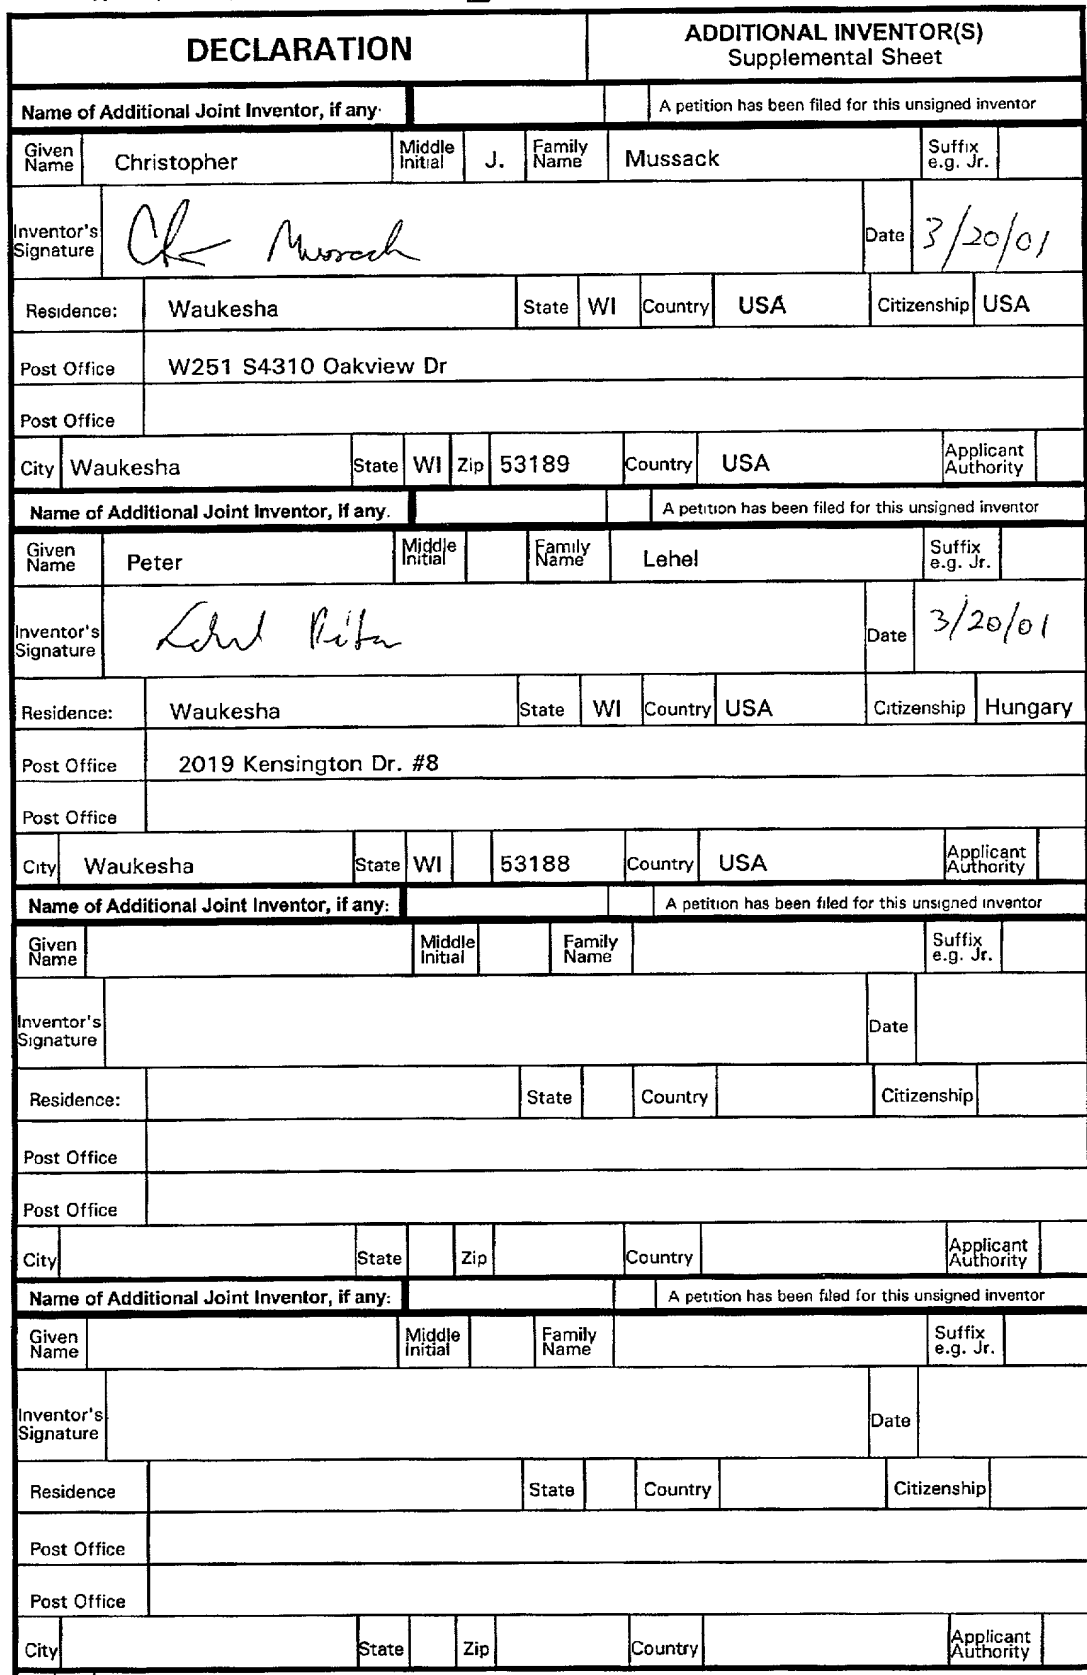 DECLARATION
ADDITIONAL INVENTOR(S)
Supplemental Sheet
Name of Additional Joint Inventor, if any:
A petition has been filed for this unsigned inventor
Given Name Christopher Middle Initial J. Family Name Mussack Suffix e.g. Jr.
Inventor's Signature Mussack Date 3/20/01
Residence: Waukesha State WI Country USA Citizenship USA
Post Office W251 S4310 Oakview Dr
Post Office
City Waukesha State WI Zip 53189 Country USA Applicant Authority
Name of Additional Joint Inventor, if any.
A petition has been filed for this unsigned inventor
Given Name Peter Middle Initial Family Name Lehel Suffix e.g. Jr.
Inventor's Signature Lehel Péter Date 3/20/01
Residence: Waukesha State WI Country USA Citizenship Hungary
Post Office 2019 Kensington Dr. #8
Post Office
City Waukesha State WI 53188 Country USA Applicant Authority
Name of Additional Joint Inventor, if any:
A petition has been filed for this unsigned inventor
Given Name Middle Initial Family Name Suffix e.g. Jr.
Inventor's Signature Date
Residence: State Country Citizenship
Post Office
Post Office
City State Zip Country Applicant Authority
Name of Additional Joint Inventor, if any:
A petition has been filed for this unsigned inventor
Given Name Middle Initial Family Name Suffix e.g. Jr.
Inventor's Signature Date
Residence State Country Citizenship
Post Office
Post Office
City State Zip Country Applicant Authority